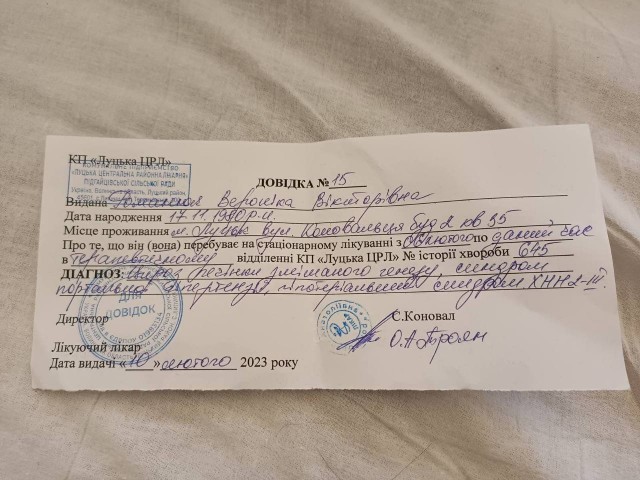 КП «Луцька ЦРЛ»
КОМУНАЛЬНЕ ПІДПРИЄМСТВО
«ЛУЦЬКА ЦЕНТРАЛЬНА РАЙОННА ЛІКАРНЯ»
ПІДГАЙЦІВСЬКОЇ СІЛЬСЬКОЇ РАДИ
ДОВІДКА № 15
Видана Вероніка Вікторівна
Дата народження 17.11.1980 р.н.
Місце проживання м. Луцьк вул. Коновальця буд 2 кв 35
Про те, що він (вона) перебуває на стаціонарному лікуванні з лютого по даний час
в терапевтичному відділенні КП «Луцька ЦРЛ» № історії хвороби 645
ДІАГНОЗ: Цироз печінки змішаного генезу, синдром
портальної гіпертензії, гіпотеріальний синдром ХНН 2-III.
ДЛЯ
ДОВІДОК
Директор С.Коновал
Лікуючий лікар О.А.Троян
Дата видачі «10» лютого 2023 року